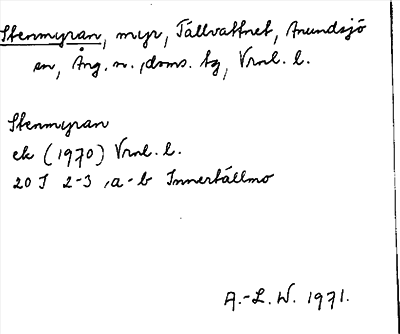 Stenmyran, myr, Tällvattnet, Anundsjö
sn, Ång. n., doms. tg, Vrnl. l.
Stenmyran
ek (1970) Vrnl. l.
20 I 2-3, a-b Innertällmo
A.-L. W. 1971.